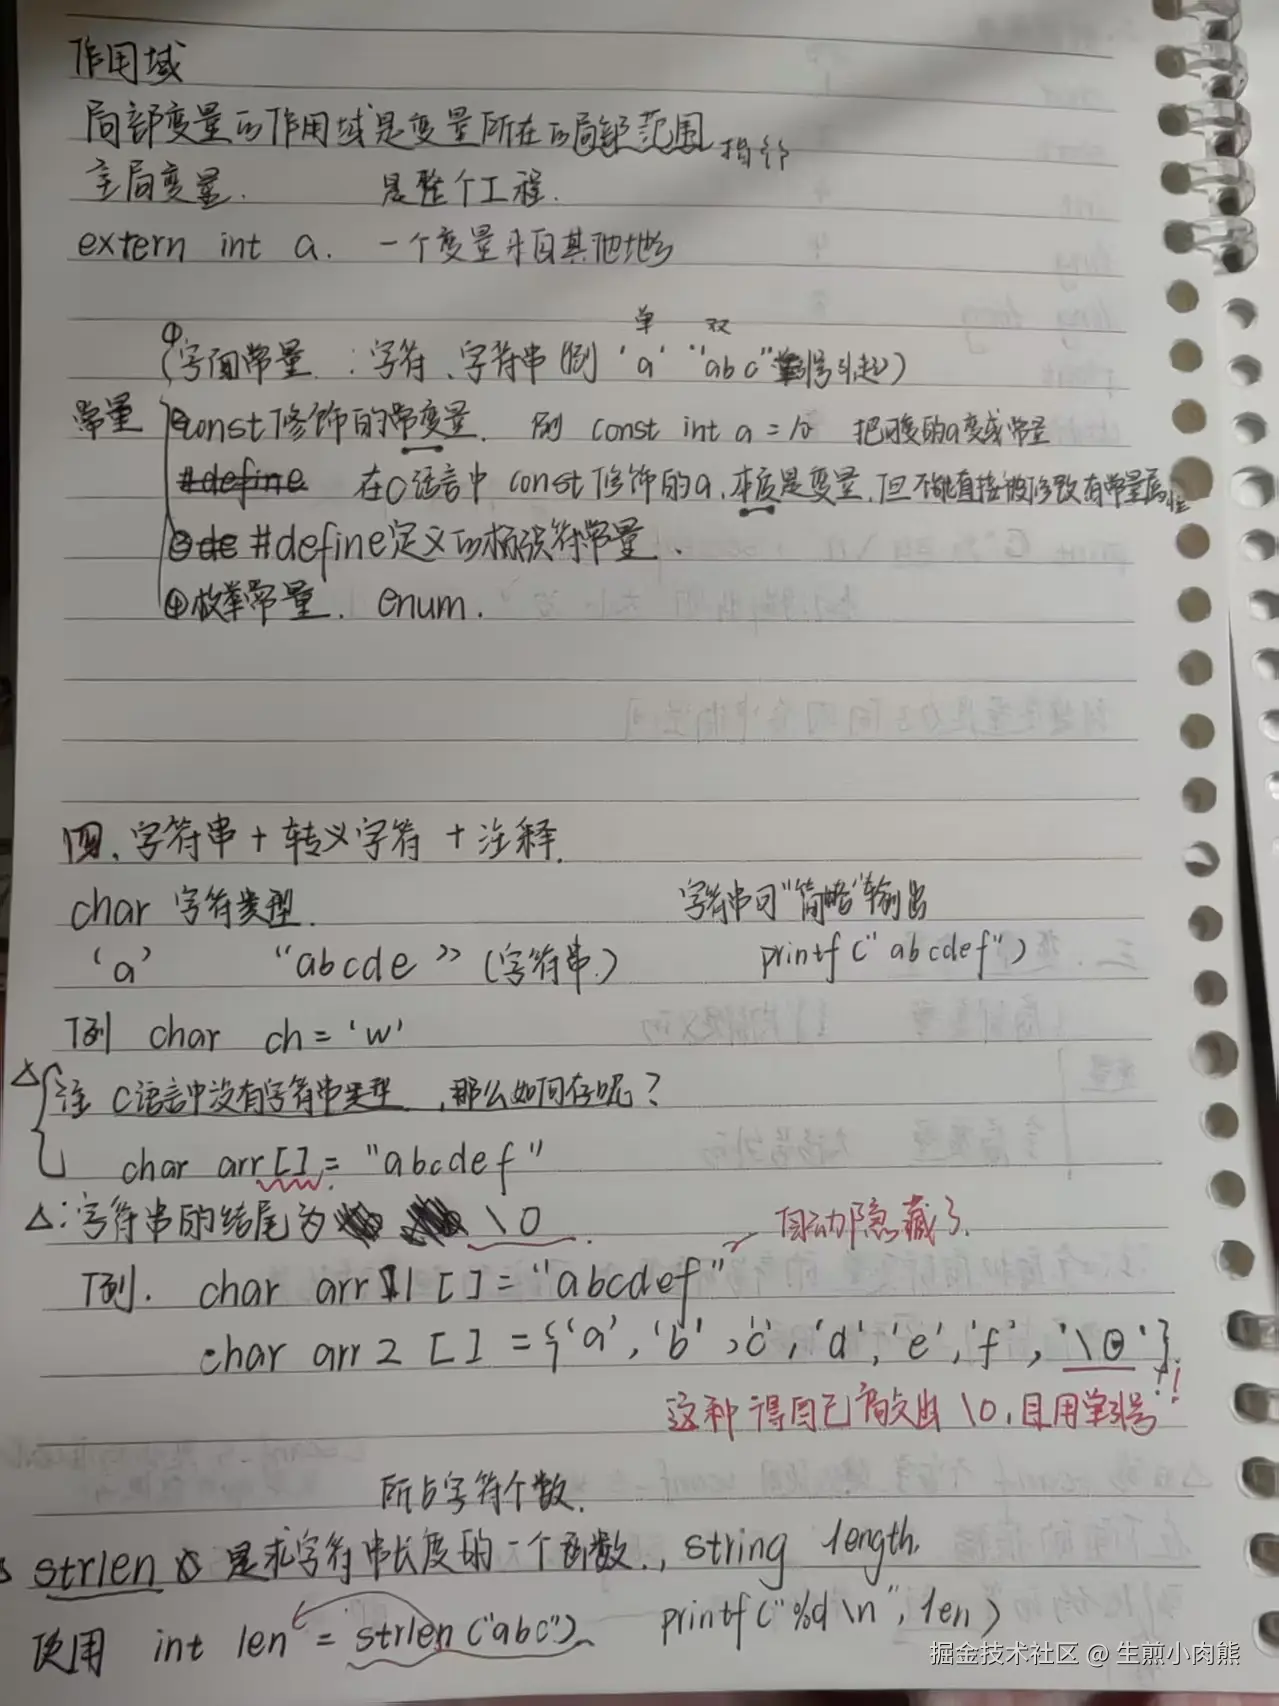 作用域
局部变量的作用域是变量所在的局部范围
全局变量. 是整个工程.
extern int a. 一个变量来自其他地方
单 双
①字面常量 : 字符、字符串(例 'a' "abc" 引号引起)
常量 ②const修饰的常变量. 例 const int a = 10 把可变的a变成常量
#define 在C语言中 const修饰的a,本质是变量,但不能直接被修改有常量属性
③de #define定义的标识符常量.
④枚举常量. enum.
四、字符串 + 转义字符 + 注释.
char 字符类型. 字符串可"简略"输出
'a' "abcde" (字符串.) printf("abcdef")
例 char ch = 'w'
△注 C语言中没有字符串类型.,那么如何存呢?
char arr[] = "abcdef"
△:字符串的结尾为 \0. 自动隐藏了.
例. char arr1[] = "abcdef"
char arr2[] = {'a', 'b', 'c', 'd', 'e', 'f', '\0'}.
这种得自己输出 \0, 且用单引号!!
所占字符个数.
strlen 是求字符串长度的一个函数., string length.
使用 int len = strlen("abc") printf("%d\n", len)
掘金技术社区 @ 生煎小肉熊